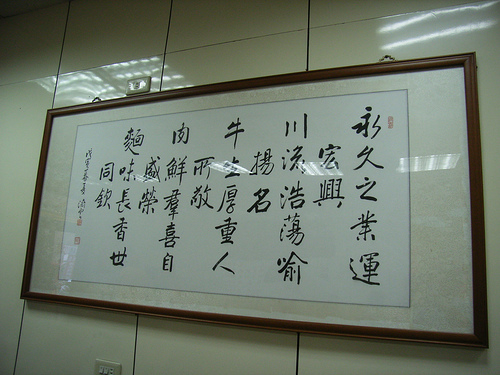 永久之業運
宏興
川流浩蕩喻
揚名
牛上厚重人
所敬
肉鮮羣喜自
盛榮
麵味長香世
同欽
戊寅春